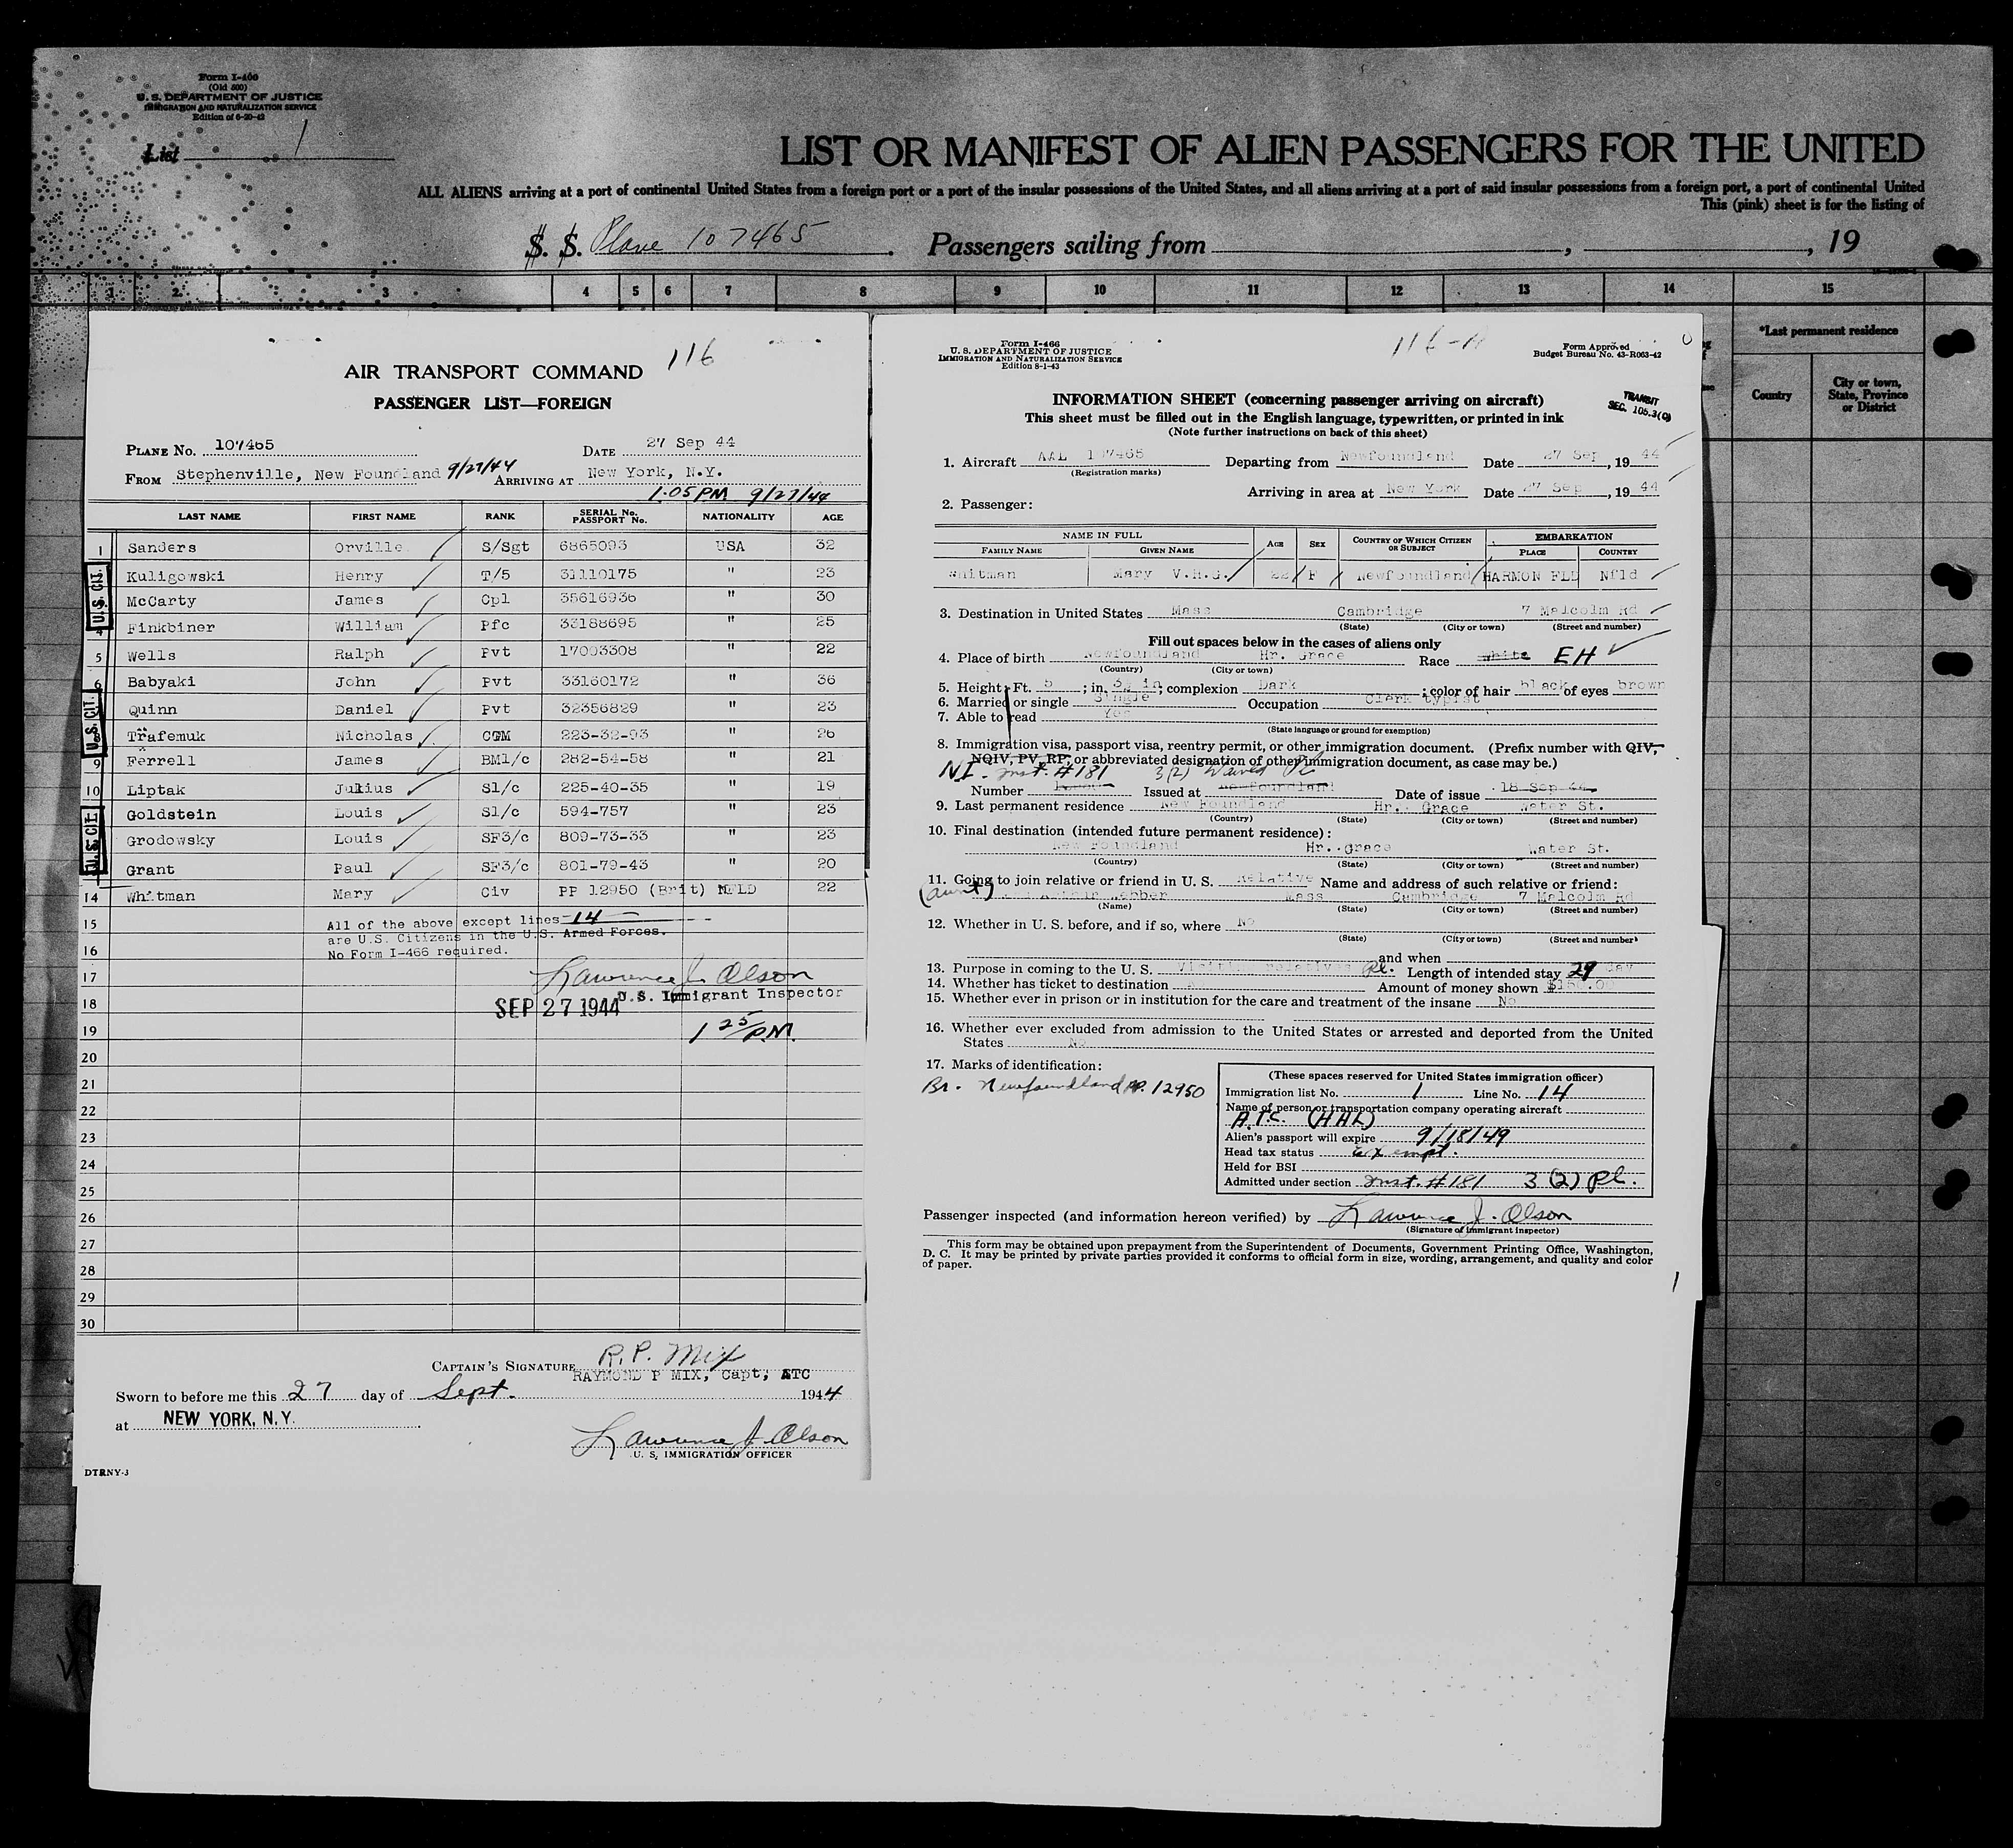 Form I-466
(Old 500)
U. S. DEPARTMENT OF JUSTICE
IMMIGRATION AND NATURALIZATION SERVICE
Edition of 6-20-42
List 1
LIST OR MANIFEST OF ALIEN PASSENGERS FOR THE UNITED
ALL ALIENS arriving at a port of continental United States from a foreign port or a port of the insular possessions of the United States, and all aliens arriving at a port of said insular possessions from a foreign port, a port of continental United
This (pink) sheet is for the listing of
S. S. Plane 107465 . Passengers sailing from , , 19
1 2 3 4 5 6 7 8 9 10 11 12 13 14 15
*Last permanent residence
Country
City or town, State, Province or District
116
AIR TRANSPORT COMMAND
PASSENGER LIST—FOREIGN
PLANE NO. 107465 DATE 27 Sep 44
FROM Stephenville, New Foundland 9/27/44 ARRIVING AT New York, N.Y.
1:05 PM 9/27/44
LAST NAME FIRST NAME RANK SERIAL No. PASSPORT No. NATIONALITY AGE
1 Sanders Orville S/Sgt 6865093 USA 32
Kuligowski Henry T/5 31110175 " 23
McCarty James Cpl 35616936 " 30
4 Finkbiner William Pfc 33188695 " 25
5 Wells Ralph Pvt 17003308 " 22
6 Babyaki John Pvt 33160172 " 36
Quinn Daniel Pvt 32356829 " 23
8 Trafemuk Nicholas CGM 223-32-93 " 26
9 Ferrell James BM1/c 282-54-58 " 21
10 Liptak Julius S1/c 225-40-35 " 19
Goldstein Louis S1/c 594-757 " 23
Grodowsky Louis SF3/c 809-73-33 " 23
Grant Paul SF3/c 801-79-43 " 20
14 Whitman Mary Civ PP 12950 (Brit) NFLD 22
U.S. CIT.
U.S. CIT.
U.S. CIT.
15 All of the above except lines 14
are U.S. Citizens in the U.S. Armed Forces.
16 No Form I-466 required.
17 Lawrence J. Olson
18 SEP 27 1944 U.S. Immigrant Inspector
19 1 25 P.M.
20
21
22
23
24
25
26
27
28
29
30
CAPTAIN'S SIGNATURE R.P. Mix
RAYMOND P MIX, Capt, ATC
Sworn to before me this 27 day of Sept. 1944
at NEW YORK, N.Y.
Lawrence J. Olson
U. S. IMMIGRATION OFFICER
DTRNY-3
Form I-466
U. S. DEPARTMENT OF JUSTICE
IMMIGRATION AND NATURALIZATION SERVICE
Edition 8-1-43
116-A
Form Approved
Budget Bureau No. 43-R063-42
TRANSIT
SEC. 105.3(C)
INFORMATION SHEET (concerning passenger arriving on aircraft)
This sheet must be filled out in the English language, typewritten, or printed in ink
(Note further instructions on back of this sheet)
1. Aircraft AAL 107465 Departing from Newfoundland Date 27 Sep, 19 44
(Registration marks)
Arriving in area at New York Date 27 Sep, 19 44
2. Passenger:
NAME IN FULL AGE SEX COUNTRY OF WHICH CITIZEN OR SUBJECT EMBARKATION
FAMILY NAME GIVEN NAME PLACE COUNTRY
Whitman Mary V.H.G. 22 F Newfoundland HARMON FLD Nfld
3. Destination in United States Mass Cambridge 7 Malcolm Rd
(State) (City or town) (Street and number)
Fill out spaces below in the cases of aliens only
4. Place of birth Newfoundland Hr. Grace Race White EH
(Country) (City or town)
5. Height: Ft. 5 ; in. 3½ in; complexion Dark ; color of hair black of eyes brown
6. Married or single Single Occupation Clerk typist
7. Able to read Yes
(State language or ground for exemption)
8. Immigration visa, passport visa, reentry permit, or other immigration document. (Prefix number with QIV,
NQIV, PV, RP, or abbreviated designation of other immigration document, as case may be.)
NI. Inst. #181 3(2) Waived
Number Issued at Newfoundland Date of issue 18 Sep 44
9. Last permanent residence New Foundland Hr. Grace Water St.
(Country) (State) (City or town) (Street and number)
10. Final destination (intended future permanent residence):
New Foundland Hr. grace Water St.
(Country) (State) (City or town) (Street and number)
11. Going to join relative or friend in U. S. Relative Name and address of such relative or friend:
(aunt) Webber Mass Cambridge 7 Malcolm Rd
(Name) (State) (City or town) (Street and number)
12. Whether in U. S. before, and if so, where No
(State) (City or town) (Street and number)
and when
13. Purpose in coming to the U. S. Visiting relatives Pl. Length of intended stay 29 day
14. Whether has ticket to destination Amount of money shown $150.00
15. Whether ever in prison or in institution for the care and treatment of the insane No
16. Whether ever excluded from admission to the United States or arrested and deported from the United
States No
17. Marks of identification:
Br. Newfoundland PP. 12950
(These spaces reserved for United States immigration officer)
Immigration list No. 1 Line No. 14
Name of person or transportation company operating aircraft
A.T.C. (AAL)
Alien's passport will expire 9/18/49
Head tax status Exempt.
Held for BSI
Admitted under section Inst. #181 3(2) Pl.
Passenger inspected (and information hereon verified) by Lawrence J. Olson
(Signature of Immigrant Inspector)
This form may be obtained upon prepayment from the Superintendent of Documents, Government Printing Office, Washington,
D. C. It may be printed by private parties provided it conforms to official form in size, wording, arrangement, and quality and color
of paper.